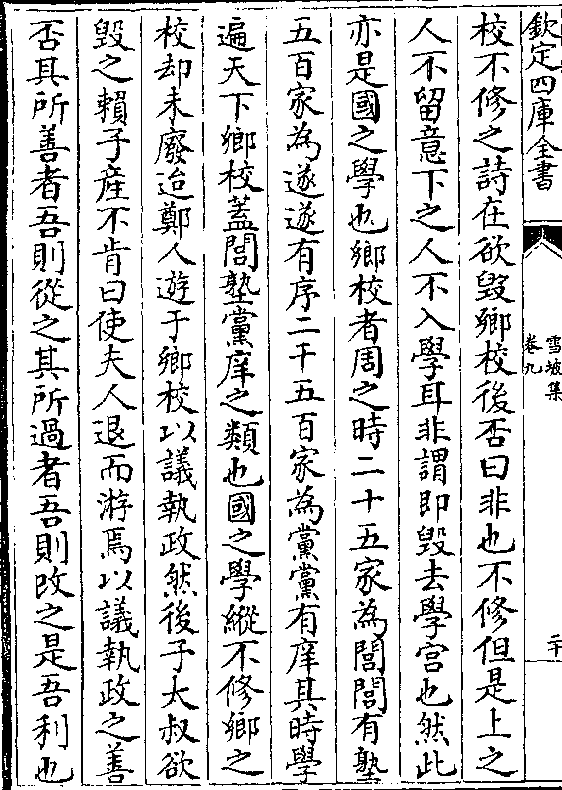 欽定四庫全書
雪坡集
卷九
二十
校不修之詩在欲毀鄉校後否曰非也不修但是上之
人不留意下之人不入學耳非謂即毀去學宫也然此
亦是國之學也鄉校者周之時二十五家為閭閭有塾
五百家為遂遂有序二千五百家為黨黨有庠其時學
遍天下鄉校蓋閭塾黨庠之類也國之學縱不修鄉之
校却未廢迨鄭人遊于鄉校以議執政然後子太叔欲
毀之賴子產不肯曰使夫人退而游焉以議執政之善
否其所善者吾則從之其所過者吾則改之是吾利也